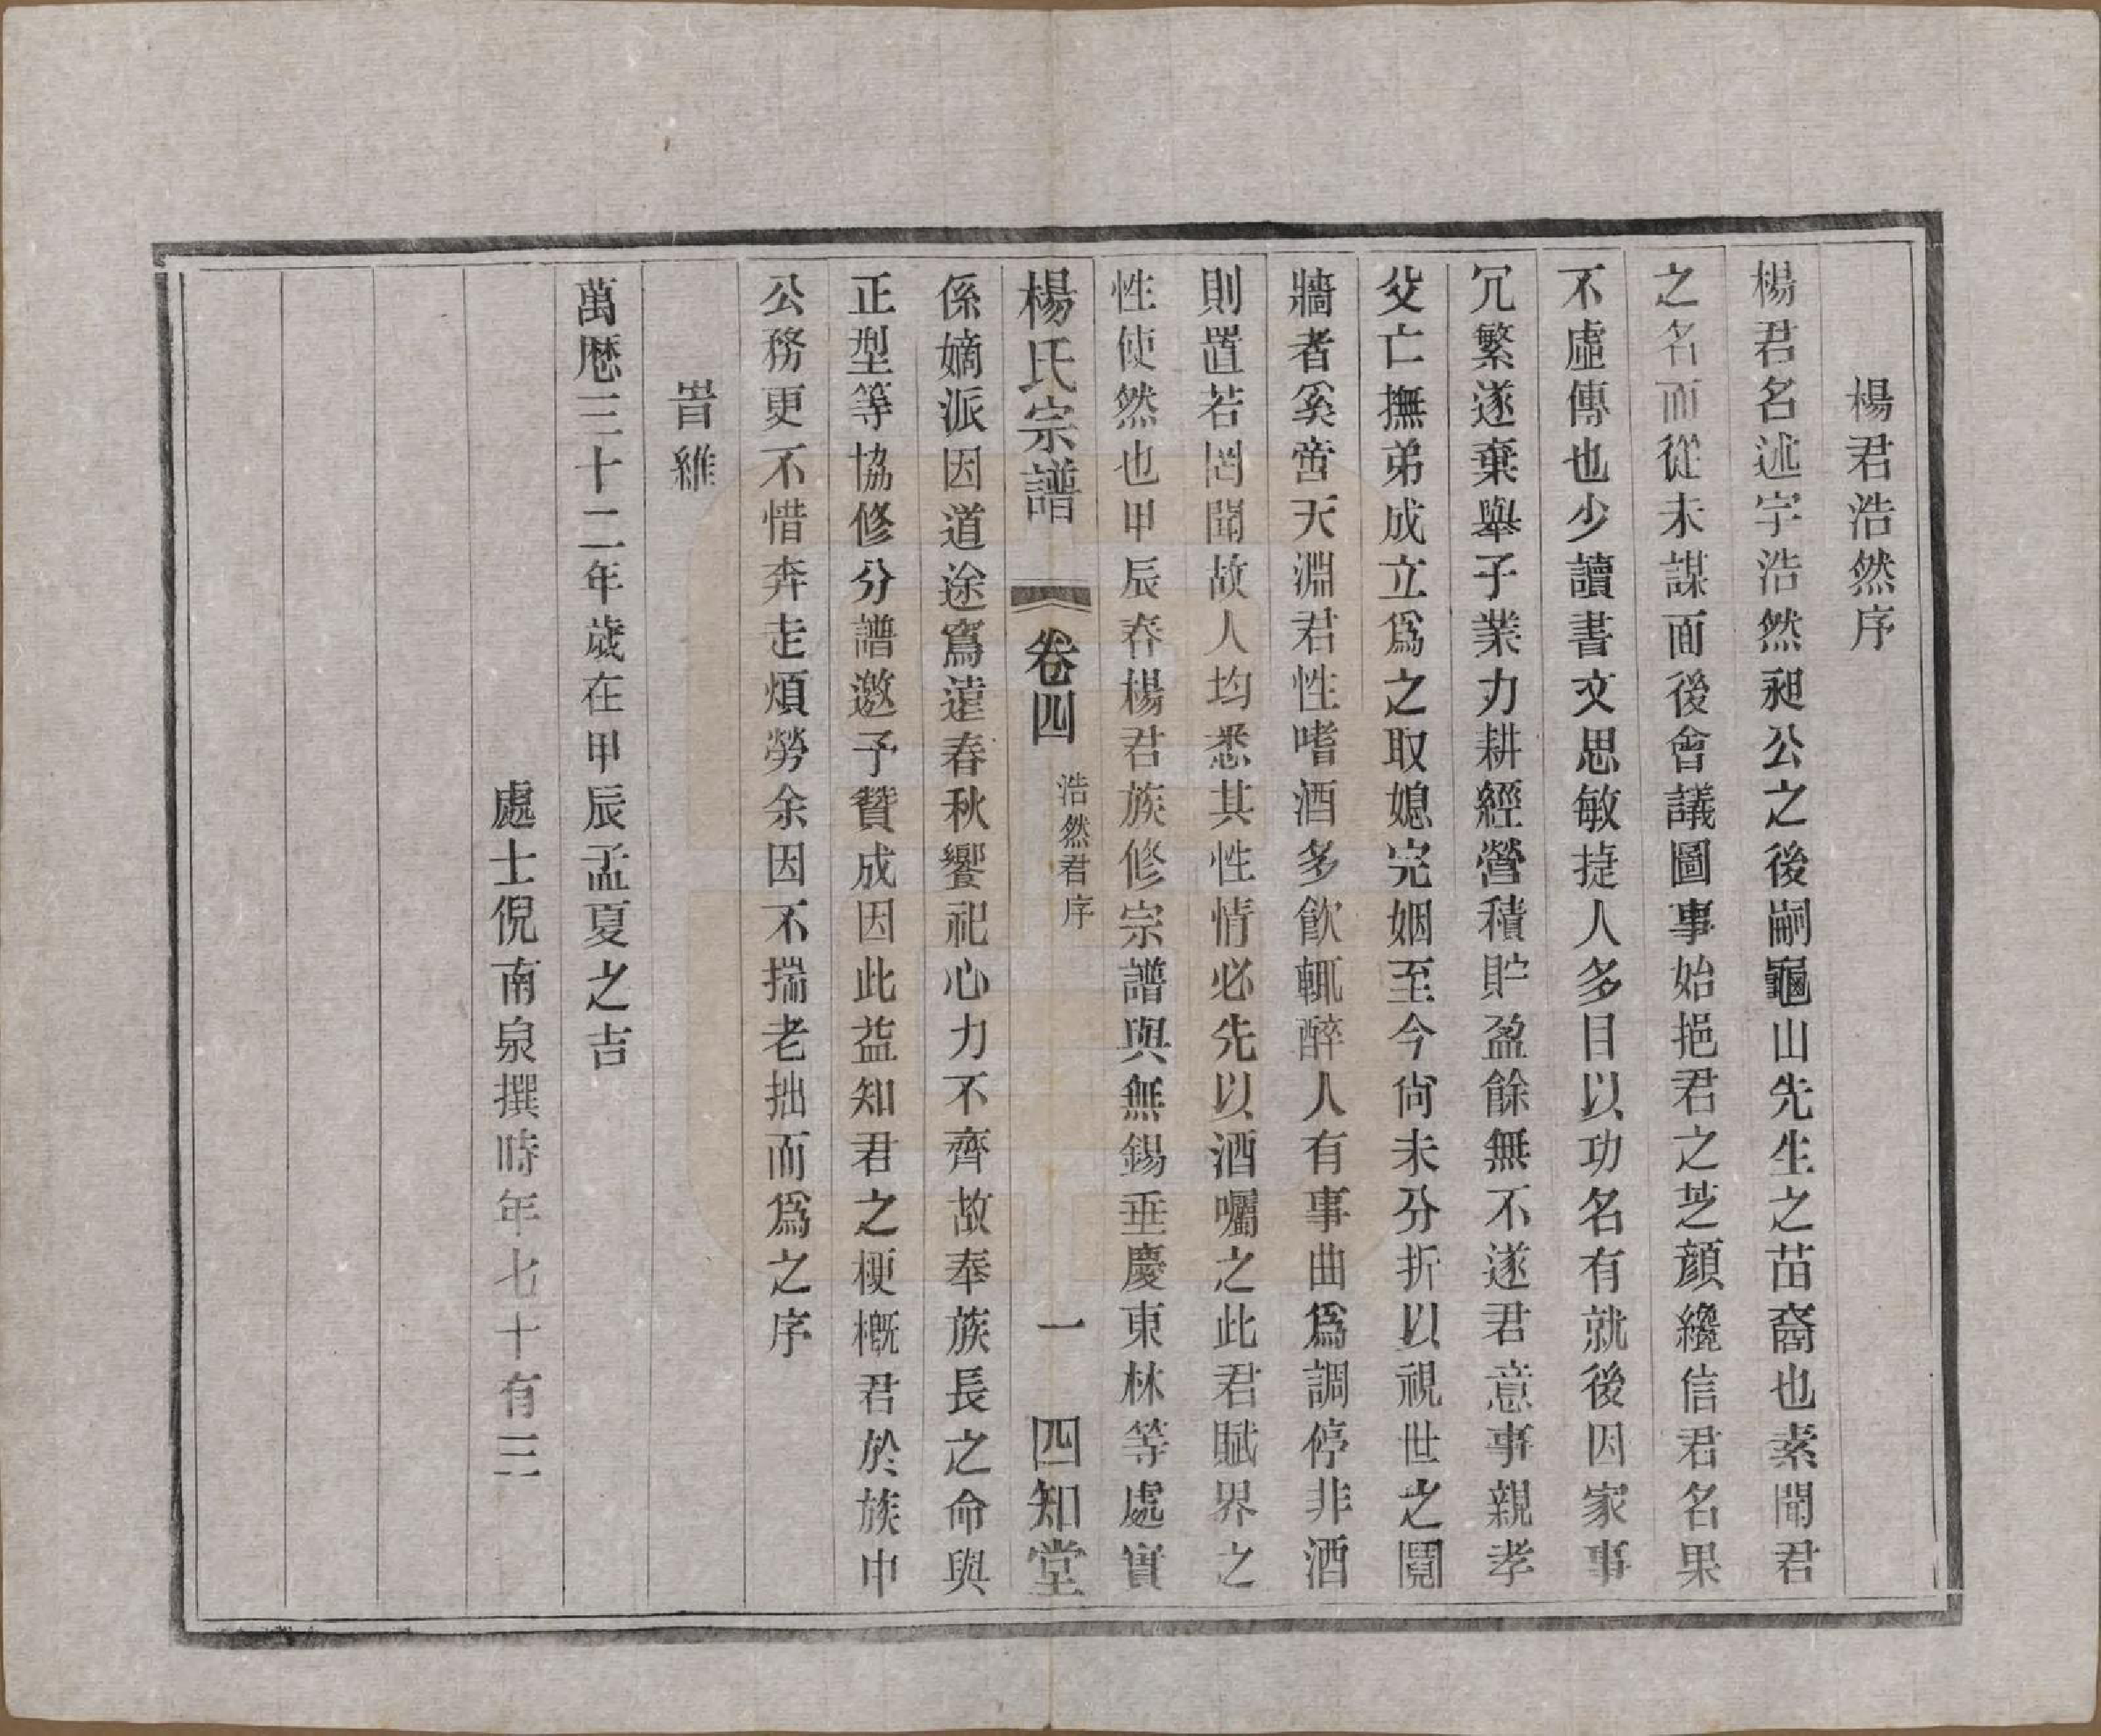 楊君浩然序
楊君名述字浩然昶公之後嗣龜山先生之苗裔也素聞君
之名而從未謀面後會議圖事始挹君之芝顏纔信君名果
不虛傳也少讀書文思敏捷人多目以功名有就後因家事
冗繁遂棄舉子業力耕經營積貯盈餘無不遂君意事親孝
父亡撫弟成立爲之取媳完姻至今尙未分折以視世之鬩
牆者奚啻天淵君性嗜酒多飲輒醉人有事曲爲調停非酒
則置若罔聞故人均悉其性情必先以酒囑之此君賦界之
性使然也甲辰春楊君族修宗譜與無錫垂慶東林等處實
楊氏宗譜
卷四
浩然君序
一
四知堂
係嫡派因道途窵遠春秋饗祀心力不齊故奉族長之命與
正型等協修分譜邀予贊成因此益知君之梗概君於族中
公務更不惜奔走煩勞余因不揣老拙而爲之序
旹維
萬厯三十二年歲在甲辰孟夏之吉
處士倪南泉撰時年七十有三